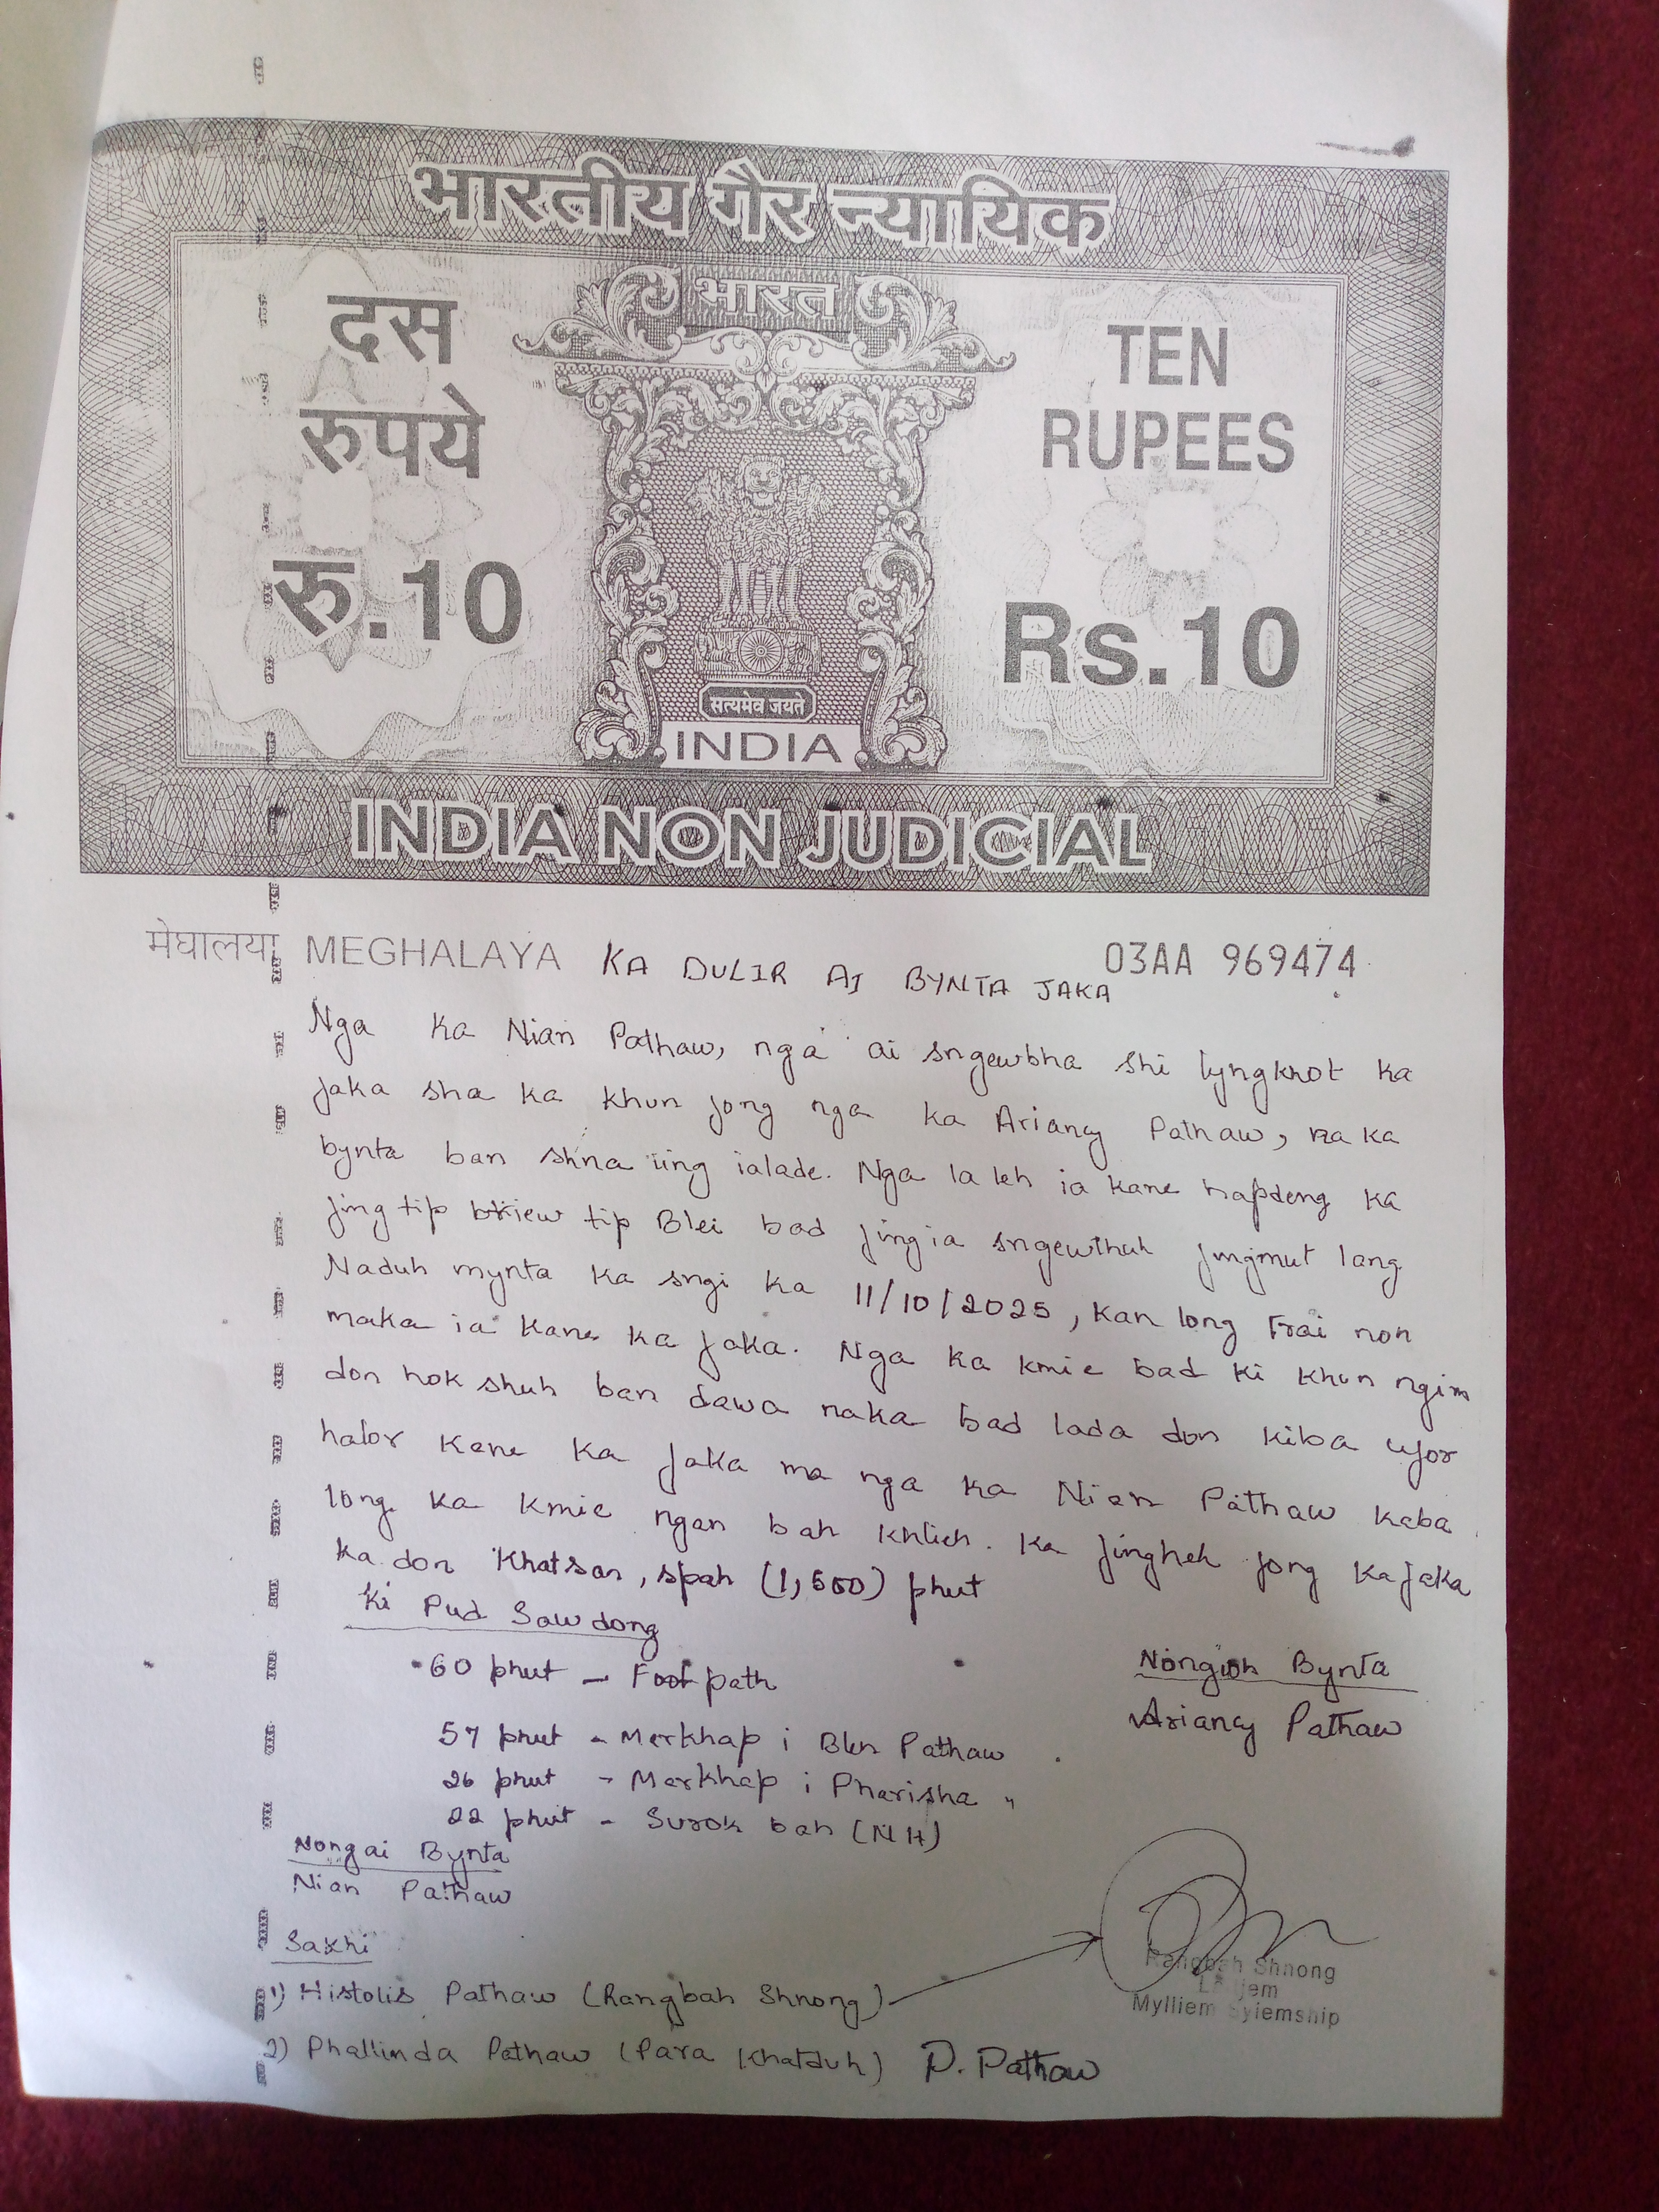 भारतीय गैर न्यायिक
भारत
दस
रुपये
रु.10
TEN
RUPEES
Rs.10
सत्यमेव जयते
INDIA
INDIA NON JUDICIAL
मेघालया MEGHALAYA 03AA 969474
KA DULIR AI BYNTA JAKA
Nga Ka Nian Pathaw, nga ai sngewbha shi lyngknot Ka
jaka sha ka khun jong nga ka Ariancy Pathaw, na ka
bynta ban shna ïing ialade. Nga la leh ia kane hapdeng ka
jingtip briew tip Blei bad jingia sngewthuh jingmut lang
Naduh mynta ka sngi ka 11/10/2025, kan long trai noh
maka ia kane ka jaka. Nga ka kmie bad ki khun ngim
don hok shuh ban dawa naka bad lada don kiba ujor
halor kane ka jaka ma nga ka Nian Pathaw kaba
long ka kmie ngan bah khlieh. Ka jingheh jong ka jaka
ka don Khatsan, spah (1,500) phut
Ki Pud Sawdong
60 phut - Footpath
57 phut - Merkhap i Blen Pathaw
26 phut - Merkhap i Pharisha "
22 phut - Surok bah (NH)
Nongioh Bynta
Ariancy Pathaw
Nongai Bynta
Nian Pathaw
Sakhi
1) Histolis Pathaw (Rangbah Shnong)
Rangbah Shnong
Mylliem Syiemship
2) Phallinda Pathaw (Para Khatduh) P. Pathaw